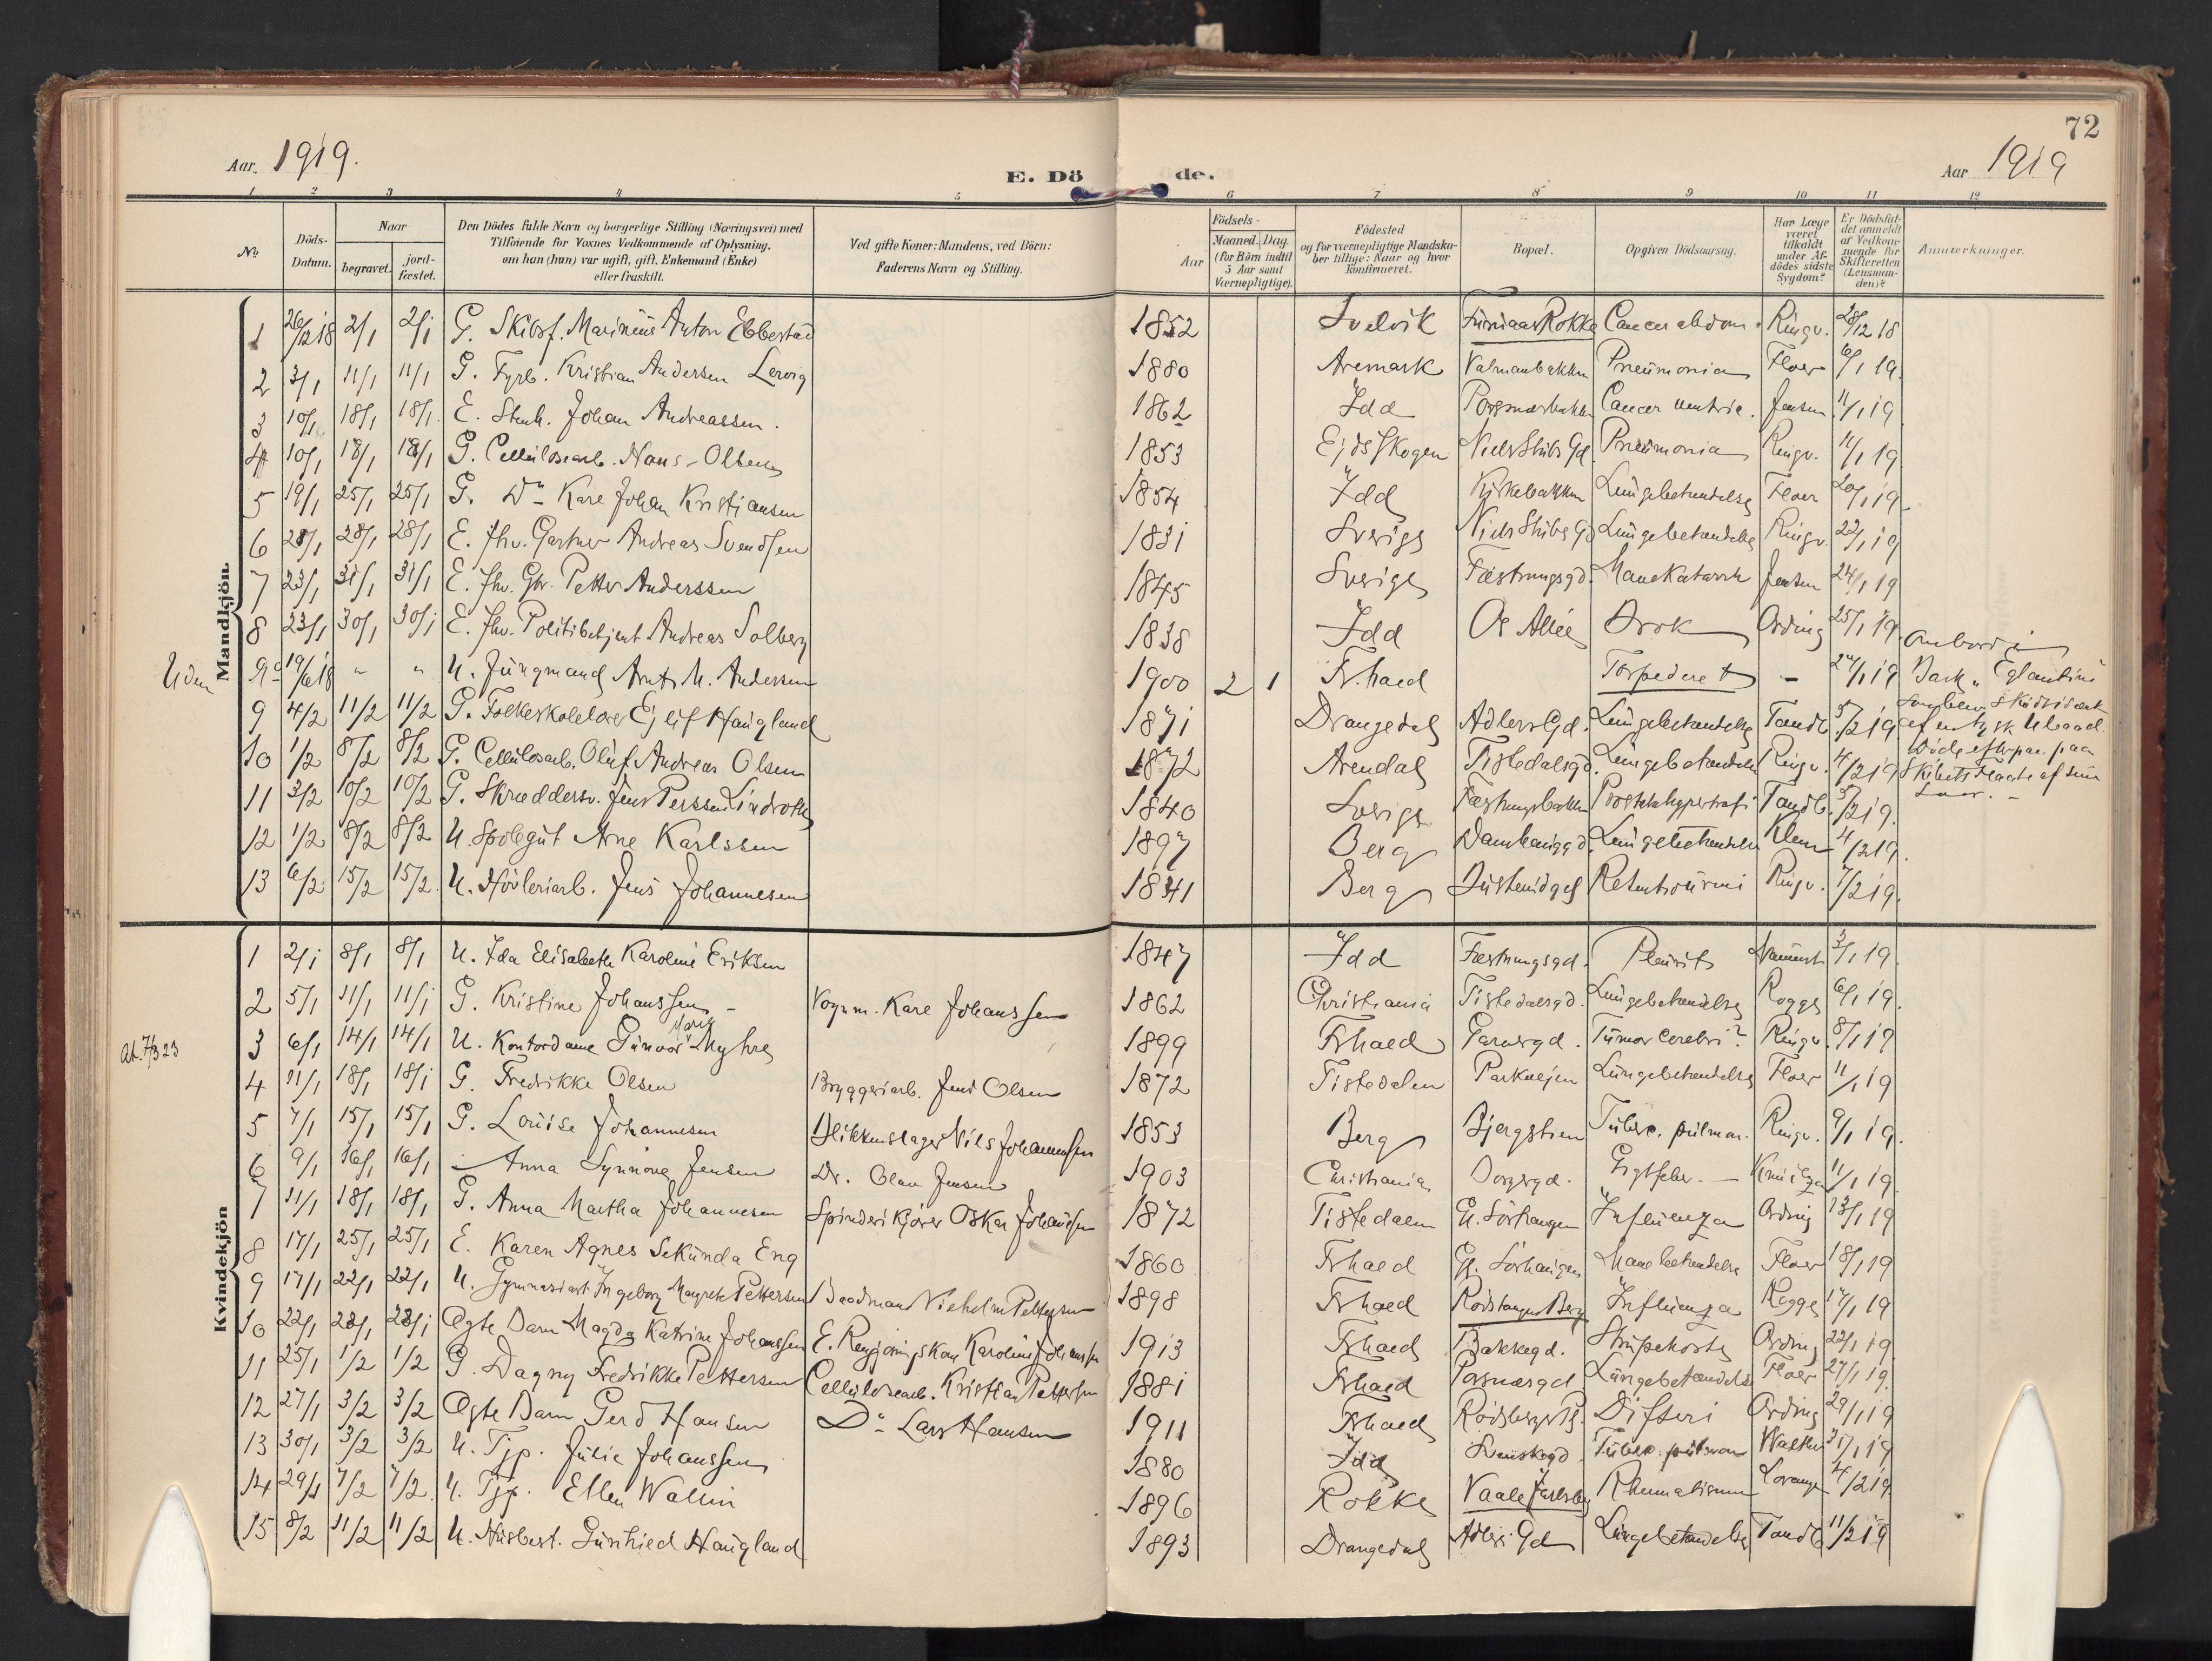 72
Aar. 1919.
E. Dö de.
Aar 1919
1 2 3 4 5 6 7 8 9 10 11 12
No. Döds-Datum. Naar begravet. jord-fæstet.
Den Dödes fulde Navn og borgerlige Stilling (Næringsvei) med Tilføiende for Voxnes Vedkommende af Oplysning, om han (hun) var ugift, gift, Enkemand (Enke) eller fraskilt.
Ved gifte Koner: Mandens, ved Börn: Faderens Navn og Stilling.
Födsels- Aar Maaned. Dag. (for Børn indtil 5 Aar samt Værnepligtige).
Födested og for værnepligtige Mandskaber tillige: Naar og hvor Konfirmeret.
Bopæl.
Opgiven Dödsaarsag.
Har Læge været tilkaldt under Afdödes sidste Sygdom?
Er Dödsfaldet anmeldt af Vedkommende for Skifteretten (Lensmanden)?
Anmærkninger.
Mandkjön
1 26/12 18 2/1 2/1 G. Skibsf. Marinius Anton Ebbestad 1852 Svelvik Rokke Cancer abdom. Ringv. 28/12 18
2 3/1 11/1 11/1 G. Fyrb. Kristian Andersen Lervig 1880 Aremark Pneumonia Floer 6/1 19.
3 10/1 18/1 18/1. E. Stenh. Johan Andreassen. 1862 Idd Cancer ventric. Jensen 11/1 19
4 10/1 18/1 18/1 G. Cellulosearb. Hans Olsen 1853 Ejdsskogen Niels Stubs Gd Pneumonia Ringv. 11/1 19
5 19/1 25/1 25/1 G. Do Karl Johan Kristiansen 1854 Idd Kirkebakken Lungebetændelse Floer 20/1 19
6 28/1 28/1 E. fhv. Gartner Andreas Svendsen 1831 Sverige Niels Stubs Gd Lungebetændelse Ringv. 22/1 19
7 23/1 31/1 31/1 E. fhv. Gbr. Petter Anderssen 1845 Sverige Fæstningsgd. Mavekatarrh Jensen 24/1 19
8 23/1 30/1 30/1 E. fhv. Politibetjent Andreas Solberg 1838 Idd Os Allée Brok Ording 25/1 19.
Uden 9a 19/6 18 " " U. Jungmand Arnt M. Andersen 1900 2 1 Fr.hald Torpederet - 24/1 19
Ombord i Bark „Eglantine" af en tysk Ubaad.
Döde paa Skibets Flaate af sine Saar. -
9 4/2 11/2 11/2 G. Folkeskolelærer Ejlif Haugland 1871 Drangedal Adlers Gd. Lungebetændelse Tandb. 5/2 19
10 1/2 8/2 8/2 G. Cellulosarb. Oluf Andreas Olsen 1872 Arendal Tistedalsgd. Lungebetændelse Ringv. 4/2 19
11 3/2 10/2 10/2 G. Skræddersv. Jens Perssen Lindroth 1840 Sverige Fæstningsbakken Prostatahypertrofi Tandb. 5/2 19.
12 1/2 8/2 8/2 U. Spolegut Arne Karlssen 1897 Berg Damhauggd. Lungebetændelse Klem 4/2 19.
13 6/2 15/2 15/2. U. Høvleriarb. Jens Johannesen 1841 Berg Ringv. 7/2 19.
Kvindekjön
1 2/1 8/1 8/1 U. Ida Elisabeth Karoline Eriksen 1847 Idd Fæstningsgd. Pleurit 3/1 19.
2 5/1 11/1 11/1 G. Kristine Johanssen - Vognm. Karl Johanssen 1862 Christiania Tistedalsgd. Lungebetændelse Rogge 6/1 19.
At. 7/3 23 3 6/1 14/1 14/1 U. Kontordame Gunvor Marie Myhre 1899 Frhald Garvergd. Tumor cerebri? Ringv. 8/1 19
4 11/1 18/1 18/1 G. Fredrikke Olsen Bryggeriarb. Jens Olsen 1872 Tistedalen Parkvejen Lungebetændelse Floer 11/1 19
5 7/1 15/1 15/1 G. Louise Johannesen Blikkenslager Nils Johannessen 1853 Berg Bjergstien Tuberc. pulmon. Ringv. 9/1 19.
6 9/1 16/1 16/1 - Anna Synnøve Jensen Dr. Olav Jensen 1903 Christiania Borgergd. Gigtfeber. - 11/1 19.
7 11/1 18/1 18/1 G. Anna Martha Johannesen Spinderikjører Oskar Johansen 1872 Tistedalen G. Sørhaugen Influenza Ording 13/1 19
8 17/1 25/1 25/1 E. Karen Agnes Sekunda Eng 1860 Frhald G. Sørhaugen Mavebetændelse Floer 18/1 19
9 17/1 22/1 22/1 U. Gymnasiast Ingeborg Margrete Pettersen Baadmand Vilhelm Pettersen 1898 Frhald Berg Influenza Rogge 17/1 19
10 22/1 28/1 28/1 Ægte Barn Magda Katrine Johanssen E. Rengjøringskone Karoline Johanssen 1913 Frhald Bakkegd. Strupehoste Ording 22/1 19
11 25/1 1/2 1/2 G. Dagny Fredrikke Pettersen Cellulosearb. Kristian Pettersen 1881 Frhald Lungebetændelse Floer 27/1 19.
12 27/1 3/2 3/2 Ægte Barn Gerd Hansen Do Lars Hansen 1911 Frhald Difteri Ording 29/1 19
13 30/1 3/2 3/2 U. Tjp. Julie Johanssen 1880 Idd Svenskegd. Tuberc. pulmon 31/1 19
14 29/1 7/2 7/2. U. Tjp. Ellen Wallin 1896 Rokke Vaale Jarlsberg Rheumatisme Lorange 4/2 19
15 8/2 11/2 11/2 U. Husbest. Gunhild Haugland 1893 Drangedal Adlers Gd Lungebetændelse Tandb 11/2 19